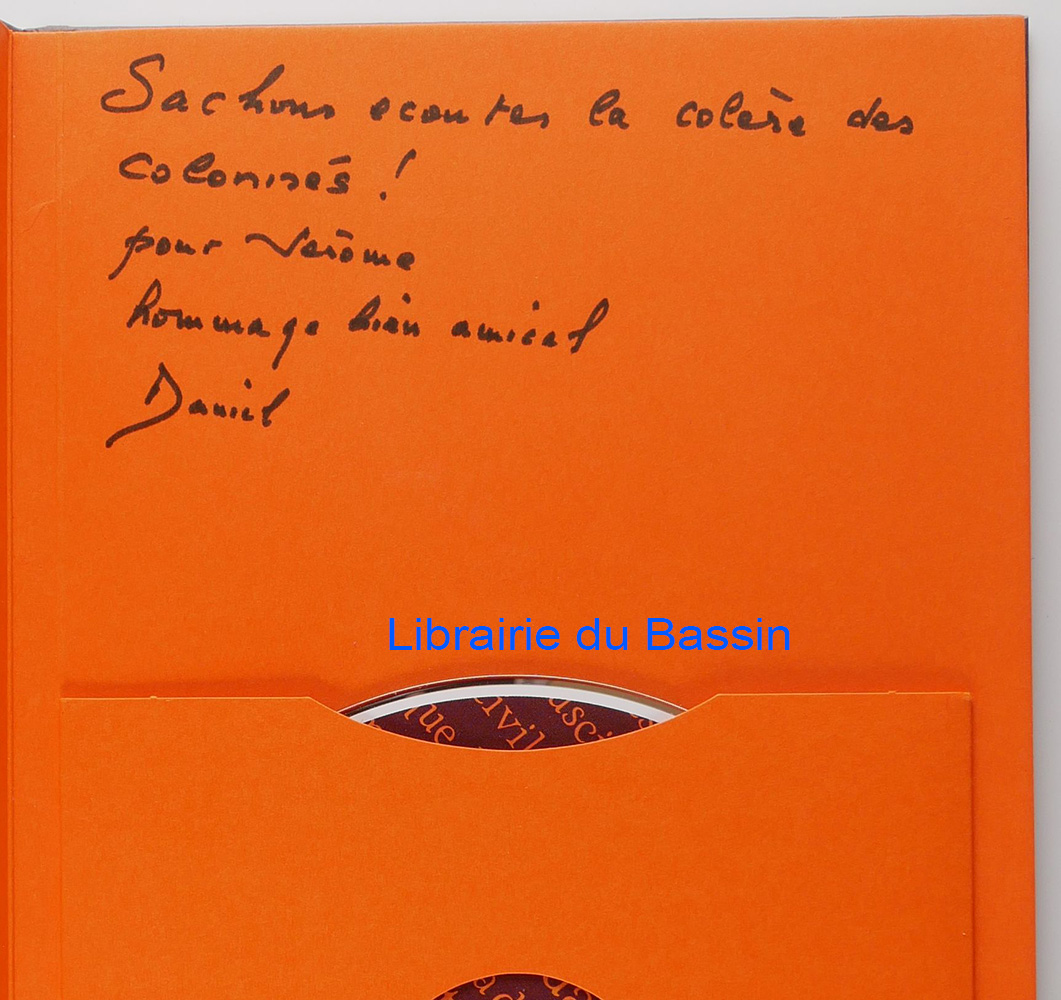 Sachons ecouter la colère des
colonisés !
pour Jérôme
hommage bien amical
Daniel
Librairie du Bassin
que civil